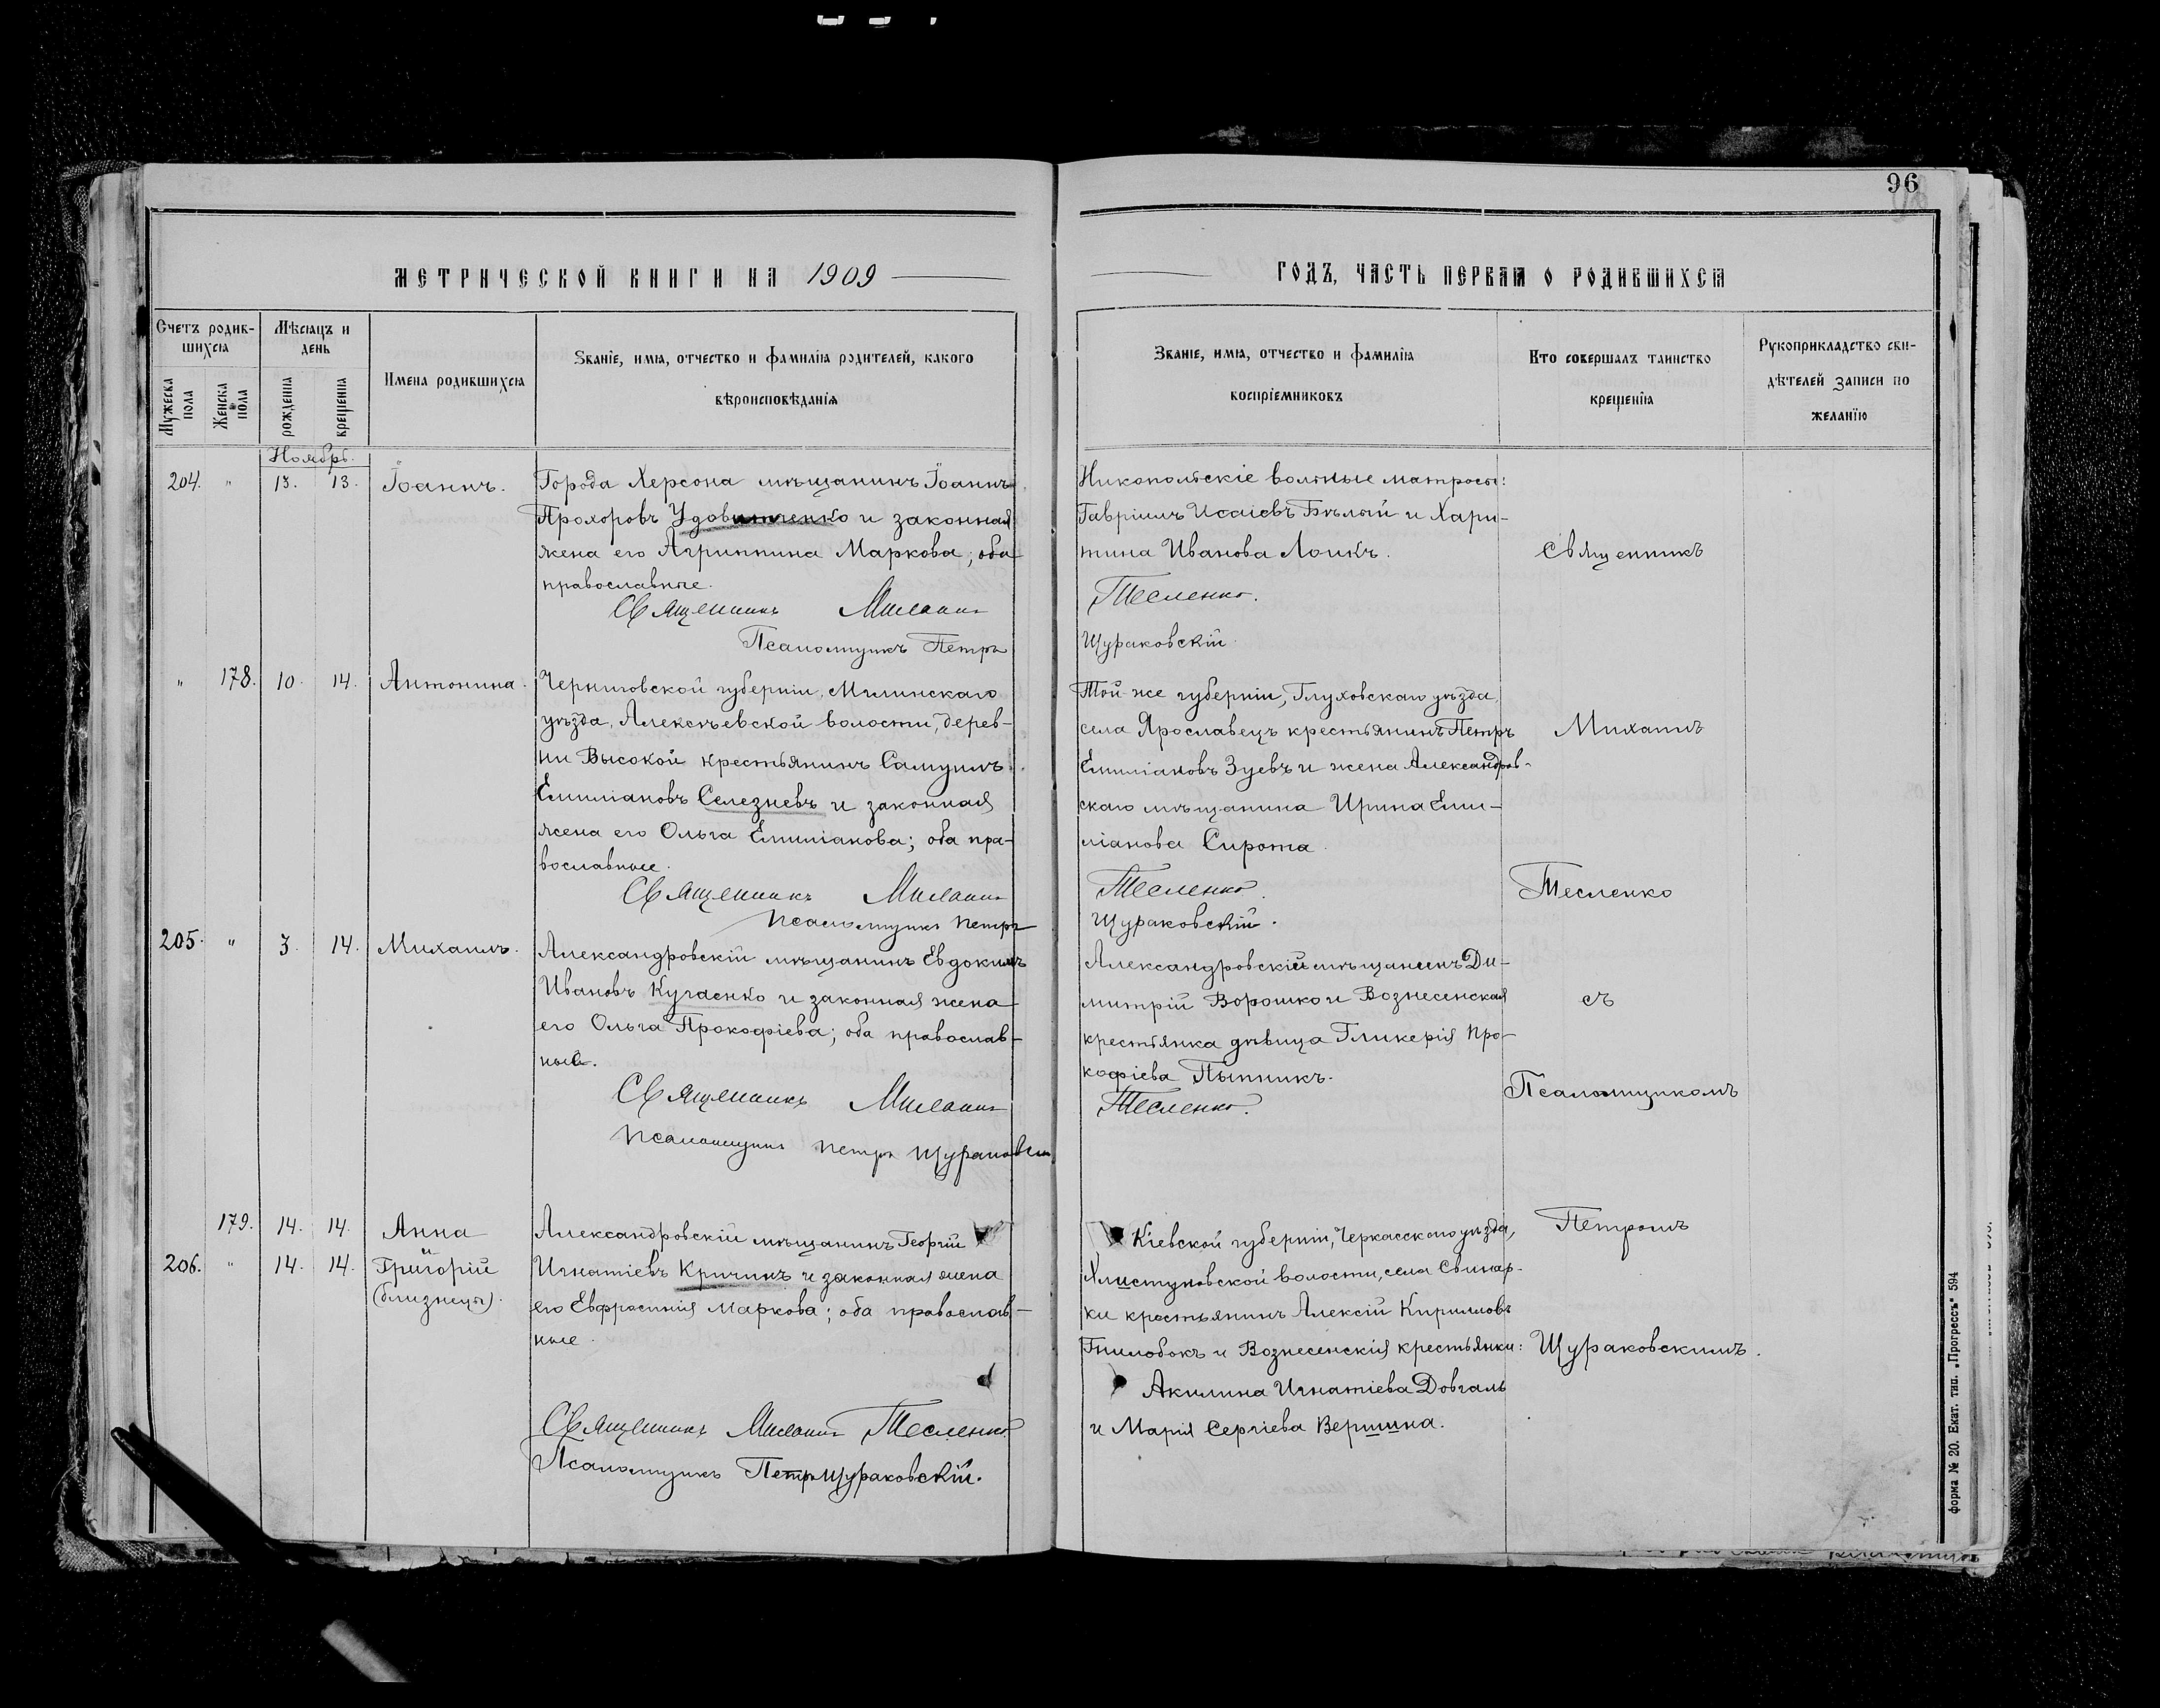 96
МЕТРИЧЕСКОЙ КНИГИ НА 1909
ГОДЪ, ЧАСТЬ ПЕРВАЯ О РОДИВШИХСЯ
Счетъ родив-
шихся
Мужеска пола
Женска пола
Мѣсяцъ и
день
рожденія
крещенія
Имена родившихся
Званіе, имя, отчество и фамилія родителей, какого
вѣроисповѣданія
Званіе, имя, отчество и фамилія
воспріемниковъ
Кто совершалъ таинство
крещенія
Рукоприкладство сви-
дѣтелей записи по
желанію
Ноябрь.
204. " 13. 13. Іоаннъ.
Города Херсона мѣщанинъ Іоаннъ
Прохоровъ и законная
жена его Агриппина Маркова; оба
православные.
Священникъ Михаилъ
Псаломщикъ Петръ
Никопольскіе вольные матросы:
Гавріилъ Исаіевъ Бѣлый и Хари-
тина Иванова Лоикъ.
Тесленко.
Щураковскій.
" 178. 10. 14. Антонина.
Черниговской губерніи, Мглинскаго
уѣзда, Алексѣевской волости, дерев-
ни Высокой крестьянинъ Самуилъ
Емиліановъ Селезневъ и законная
жена его Ольга Емиліанова; оба пра-
вославные.
Священникъ Михаилъ
Псаломщикъ Петръ
Той-же губерніи, Глуховскаго уѣзда,
села Ярославецъ крестьянинъ Петръ
Емиліановъ Зуевъ и жена Александров-
скаго мѣщанина Ирина Еми-
ліанова Сирота.
Тесленко.
Щураковскій.
205. " 3. 14. Михаилъ.
Александровскій мѣщанинъ Евдокимъ
Ивановъ Кугаенко и законная жена
его Ольга Прокофіева; оба православ-
ные.
Священникъ Михаилъ
Псаломщикъ Петръ Щураковскій
Александровскій мѣщанинъ Ди-
митрій Ворошко и Вознесенская
крестьянка дѣвица Гликерія Про-
кофіева Пыпникъ.
Тесленко.
179. 14. 14. Анна
206. " 14. 14. Григорій
(близнецы).
Александровскій мѣщанинъ Георгій
Игнатіевъ Кричинъ и законная жена
его Евфросинія Маркова; оба православ-
ные.
Священникъ Михаилъ Тесленко
Псаломщикъ Петръ Щураковскій.
Кіевской губерніи, Черкасскаго уѣзда,
Хлистуновской волости, села Свинар-
ки крестьянинъ Алексій Кирилловъ
Гнилобокъ и Вознесенскія крестьянки:
Акилина Игнатіева Довгаль
и Марія Сергіева Вершина.
Священникъ
Михаилъ
Тесленко
съ
Псаломщикомъ
Петромъ
Щураковскимъ.
форма № 20. Екат. тип. „Прогрессъ" 594